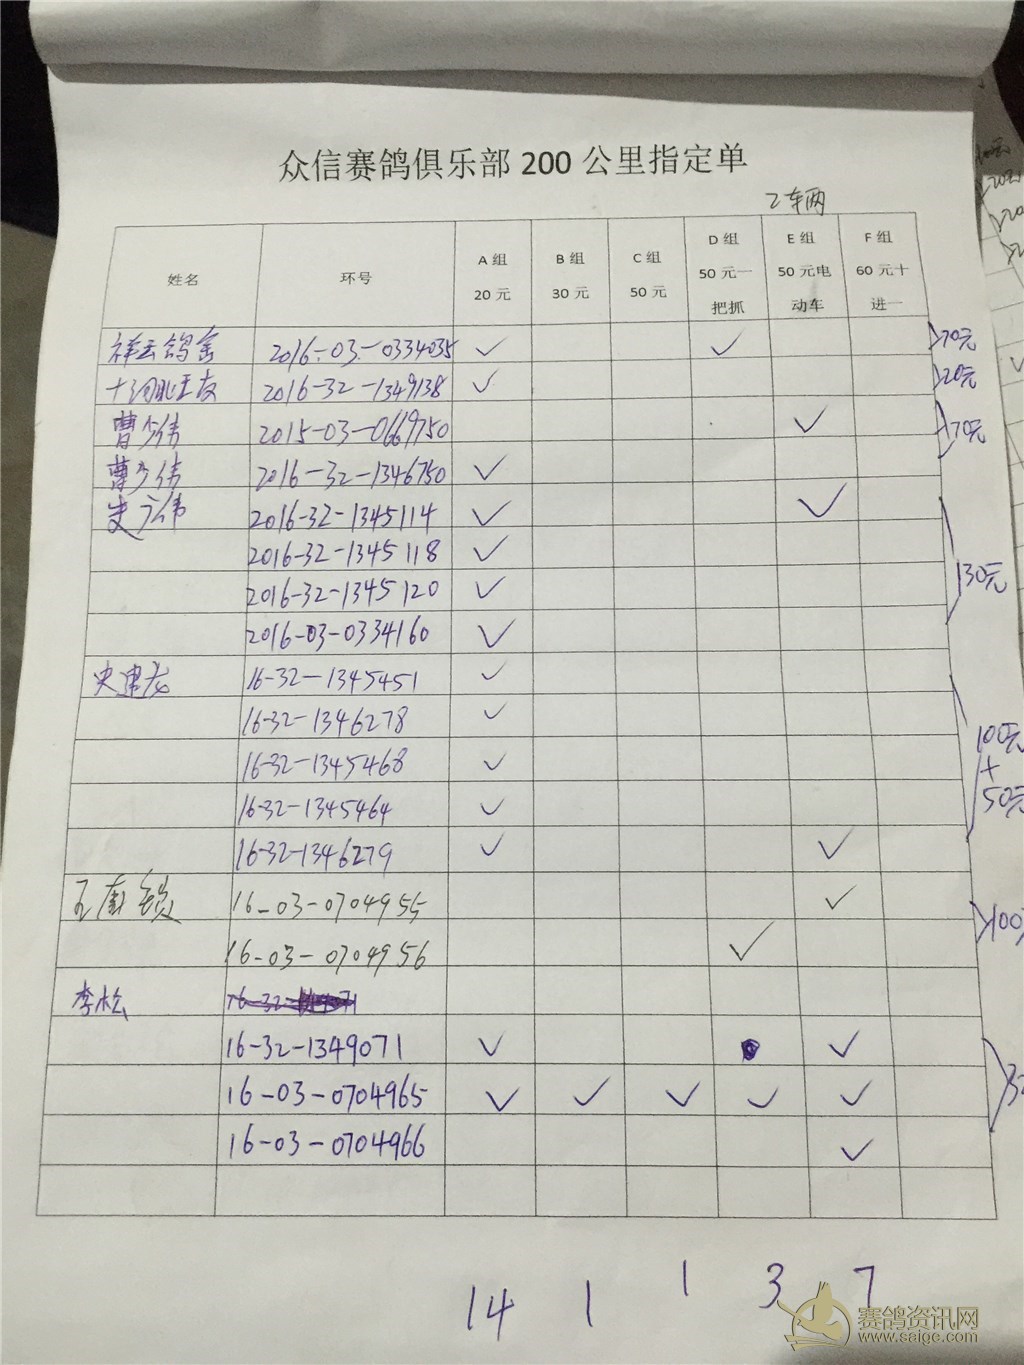 众信赛鸽俱乐部 200 公里指定单
2车两
姓名 环号 A 组 20 元 B 组 30 元 C 组 50 元 D 组 50 元一把抓 E 组 50 元电动车 F 组 60 元十进一
祥云鸽舍 2016-03-0334035 ✓ ✓ 70元
2016-32-1349138 ✓ 20元
曹少伟 2015-03-0669750 ✓ 70元
曹少伟 2016-32-1346750 ✓
史广伟 2016-32-1345114 ✓ ✓
2016-32-1345118 ✓
2016-32-1345120 ✓ 130元
2016-03-0334160 ✓
史建龙 16-32-1345451 ✓
16-32-1346278 ✓ 100元
16-32-1345468 ✓ +
16-32-1345464 ✓ 50元
16-32-1346279 ✓ ✓
16-03-0704955 ✓ 100元
16-03-0704956 ✓
李松
16-32-1349071 ✓ ✓
16-03-0704965 ✓ ✓ ✓ ✓ ✓
16-03-0704966 ✓
14 1 1 3 7
赛鸽资讯网
www.saige.com